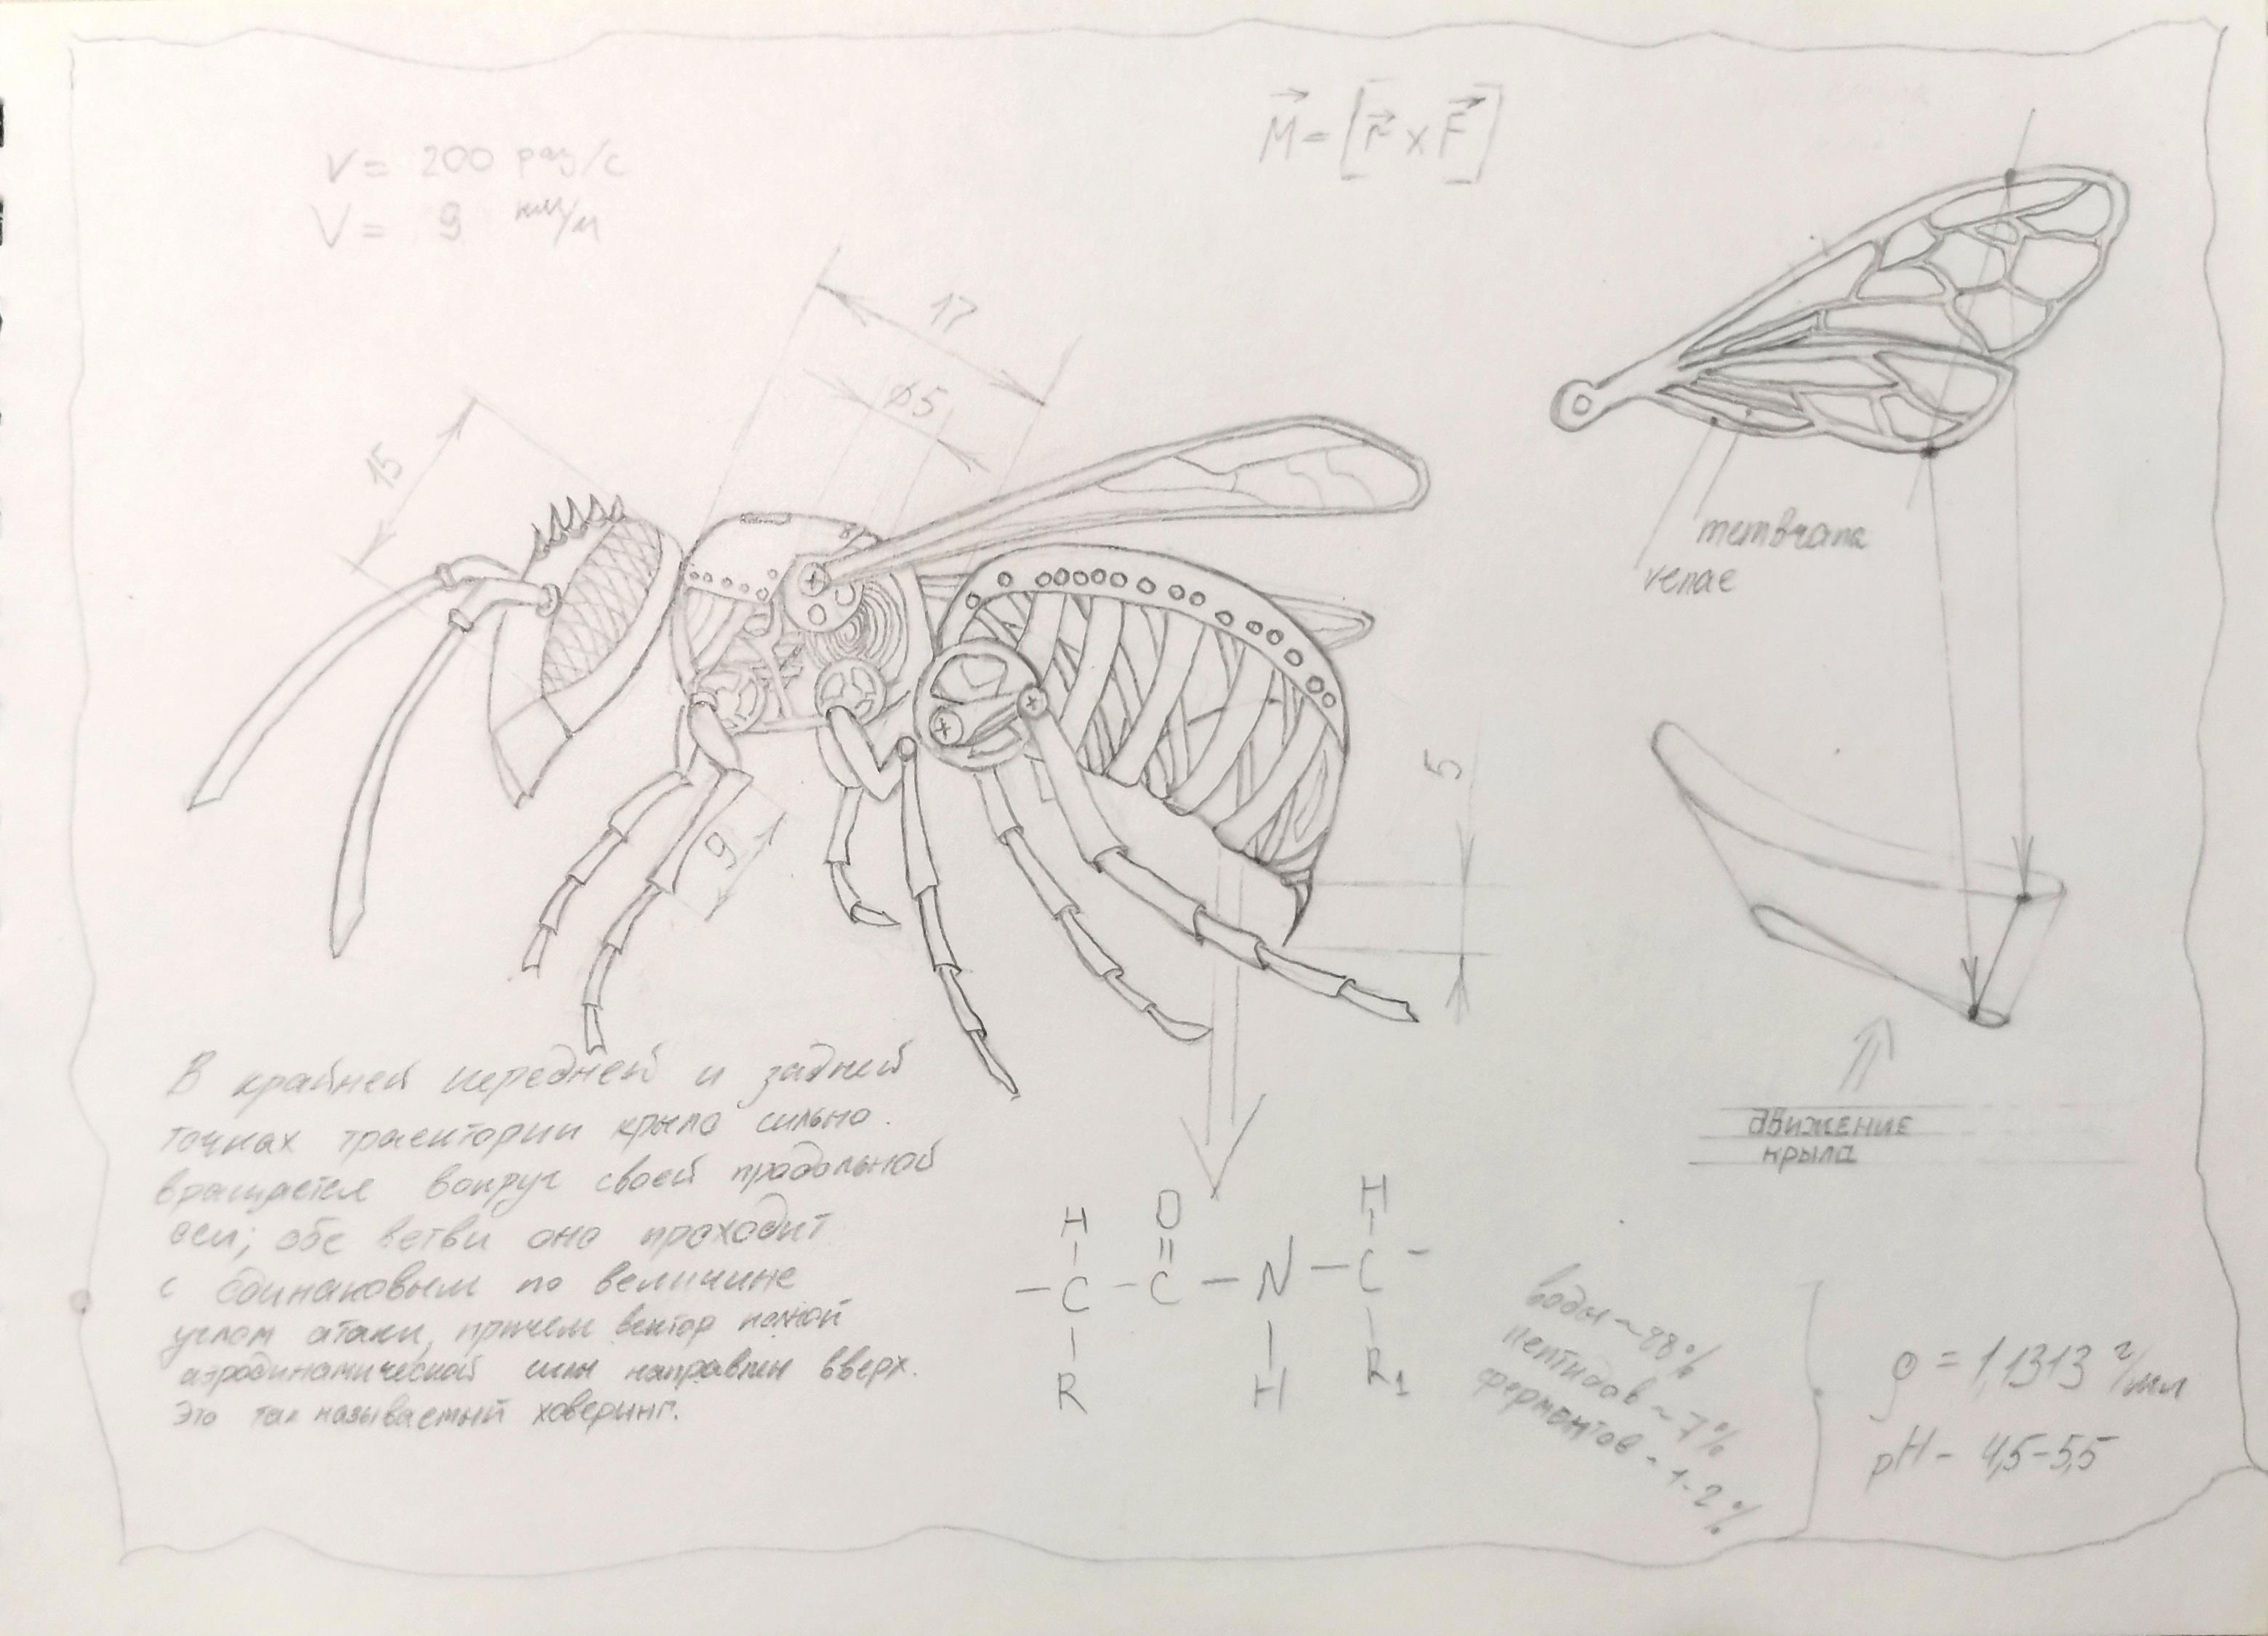 ν = 200 раз/с
V = 9 км/ч
M⃗ = [r⃗ × F⃗]
17
⌀5
15
membrana
venae
5
9
В крайней передней и задней
точках траектории крыло сильно
вращается вокруг своей продольной
оси; обе ветви оно проходит
с одинаковым по величине
углом атаки, причем вектор полной
аэродинамической силы направлен вверх.
Это так называемый ховеринг.
движение
крыла
H O H
– C – C – N – C –
R H R₁
воды ~ 88%
пептидов ~ 7%
ферментов ~ 1-2%
ρ = 1,1313 г/мл
pH – 4,5-5,5